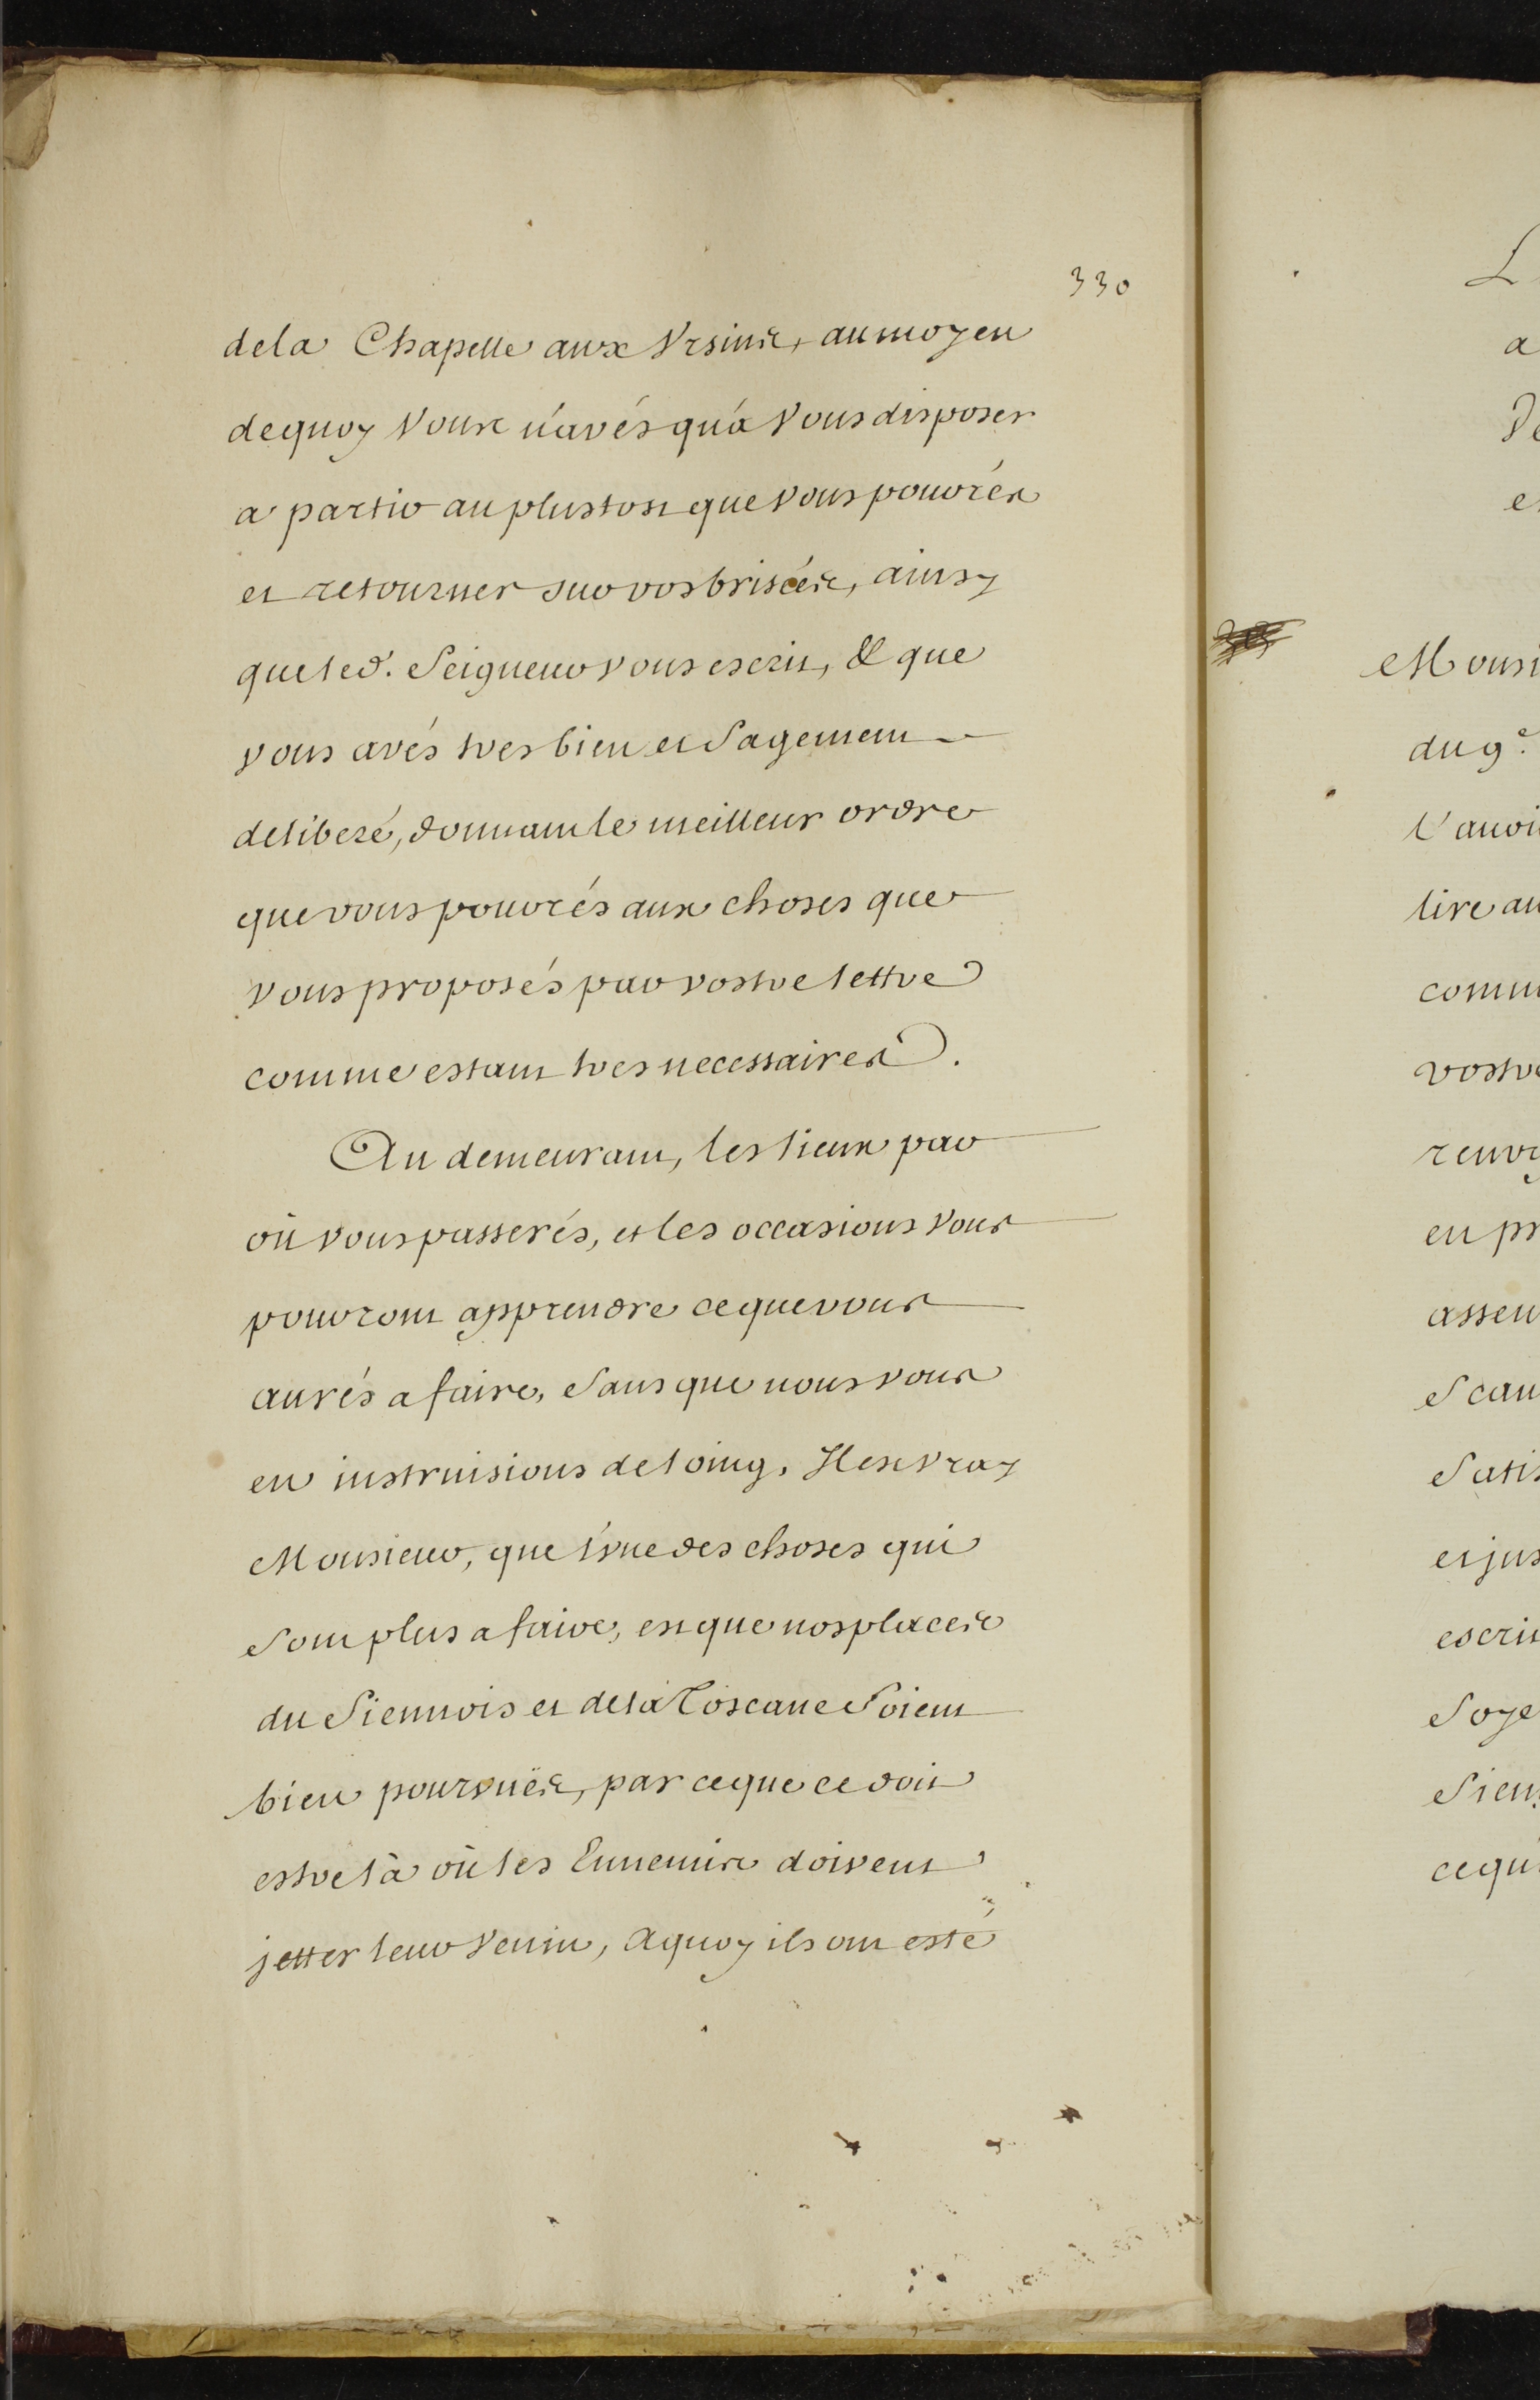 330
de la Chapelle aux Vrsins, au moyen
dequoy Vous n'avés qu'a Vous disposer
a partir au plustost que Vous pouvrés
et retourner sur vos brisées, ainsy
que led. Seigneur Vous escrit, & que
Vous avés tres bien et Sagement
deliberé, donnant le meilleur ordre
que vous pouvrés aux choses que
Vous proposés par vostre lettre
comme estant tres necessaires.
Au demeurant, les lieux par
où Vous passerés, et les occasions Vous
pouvront apprendre ce que vous
aurés a faire, Sans que nous Vous
en instruisions de loing, Il est Vray
Monsieur, que l'vne des choses qui
Sont plus a faire, est que nos places
du Siennois et de la Toscane Soient
bien pourvuës, par ce que ce doit
estre là où les Ennemis doivent
jetter leur Venin, A quoy ils ont esté
L
a
e
Monsi
du 9e.
l'avoi
lire au
comm
vostre
renv
en pr
asseu
Scau
Satis
et jus
escrit
Soye
Sien
ce qu